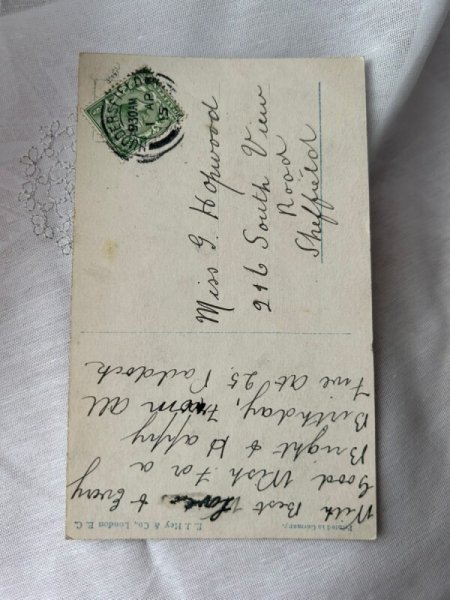 HUDDERSFIELD
8.30AM
1 AP
15
Miss G Hopwood
246 South View
Road
Sheffield
With Best Love & Every
Good Wish For a
Bright & Happy
Birthday, From all
Five at 25 Paddock
E. J. Hey & Co., London E. C.
Printed in Germany.